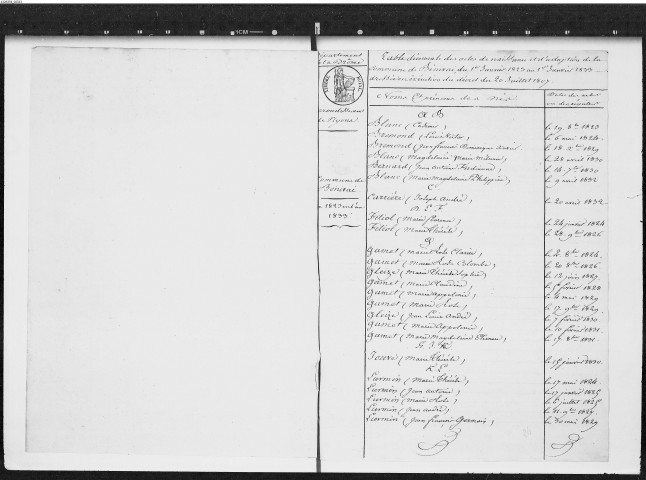 Département
de la Drôme
arrondissement
de Nyons
Commune de
Bénivai
1823 en
1833
Table décennale des actes de naissance et d'adoption de la
commune de Bénivai du 1er Janvier 1823 au 1er Janvier 1833
dressée en exécution du décret du 20 Juillet 1807
Noms et prénoms des nés
Dates des actes
A B
Blanc (
le 19 8bre 1823
Bremond (Louis Victor)
le 6 mai 1824
Bremond (jean françois Dominique
le 18 1829
Blanc (Magdeleine marie
le 28 avril 1830
Bernard (jean antoine Ferdinand)
le 14 7bre 1830
Blanc (marie magdeleine Philippine)
le 9 avril 1832
C
Carrière (Joseph André)
le 20 avril 1832
D E F
Féliol (marie
le 24 janvier 1824
Féliol (marie Thérèse)
le 28 9bre 1825
G
Gamet (marie Rose Clarice)
le 2 8bre 1824
Gamet (marie Rose Colombe)
le 20 8bre 1826
Gleize (marie Thérèse Sophie)
le 12 juin 1827
Gamet (marie Claudine)
le février 1828
Gamet (marie appolonie)
le 4 mai 1829
Gamet (marie Rose)
le 17 9bre 1829
Gleize (jean Louis André)
le 7 février 1830
Gamet (marie Appolonie)
le 10 février 1831
Gamet (marie magdeleine
le 17 8bre 1831
H I J K
Jouve (marie Thérèse)
le 15 janvier 1830
K L
Lurmin (marie Thérèse)
le 17 mai 1824
Lurmin (jean antoine)
le 17 janvier 1825
Lurmin (marie Rose)
le juillet 1825
Lurmin (jean andré)
le 21 9bre 1827
Lurmin (jean françois Germain)
le 30 mai 1829